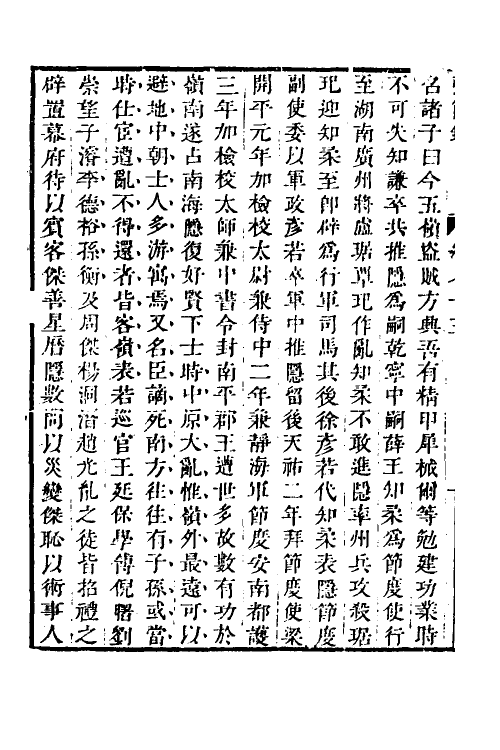 名諸子曰今五嶺盜賊方興吾有精甲犀械爾等勉建功業時
不可失知謙卒共推隱爲嗣乾寧中嗣薛王知柔爲節度使行
至湖南廣州將盧琚覃玘作亂知柔不敢進隱率州兵攻殺琚
玘迎知柔至卽辟爲行軍司馬其後徐彥若代知柔表隱節度
副使委以軍政彥若卒軍中推隱留後天祐二年拜節度使梁
開平元年加檢校太尉兼侍中二年兼靜海軍節度安南都護
三年加檢校太師兼中書令封南平郡王遭世多故數有功於
嶺南遂占南海隱復好賢下士時中原大亂惟嶺外最遠可以
避地中朝士人多游寓焉又名臣謫死南方往往有子孫或當
時仕宦遭亂不得還者皆客嶺表若巡官王延保學傳倪曙劉
崇望子濬李德裕孫衡及周傑楊洞潛趙光胤之徒皆招禮之
辟置幕府待以賓客傑善星曆隱數問以災變傑恥以術事人